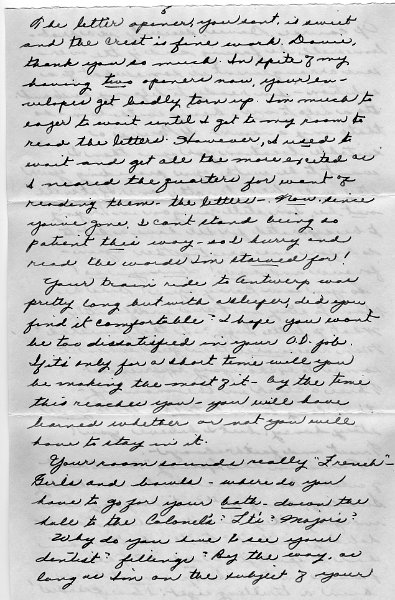 5
The letter opener, you sent, is sweet
and the crest is fine work. Davie,
thank you so much. In spite of my
having two openers now, your en-
velopes get badly torn up. I'm much to
eager to wait until I get to my room to
read the letters. However, I used to
wait and get all the more excited as
I neared the quarters for want of
reading them - the letters - Now, since
you've gone, I can't stand being so
patient this way - so I hurry and
read the words I'm starved for!
Your train ride to Antwerp was
pretty long but with a sleeper, did you
find it comfortable? I hope you won't
be too dissatified in your O.D. job.
If it's only for a short time will you
be making the most of it - by the time
this reaches you - you will have
learned whether or not you will
have to stay in it.
Your room sounds really "French" -
Girls and bowls - where do you
have to go for your bath - down the
hall to the Colonel's? Lt's? Major's?
Why do you have to see your
dentist? fillings? By the way, as
long as I'm on the subject of your